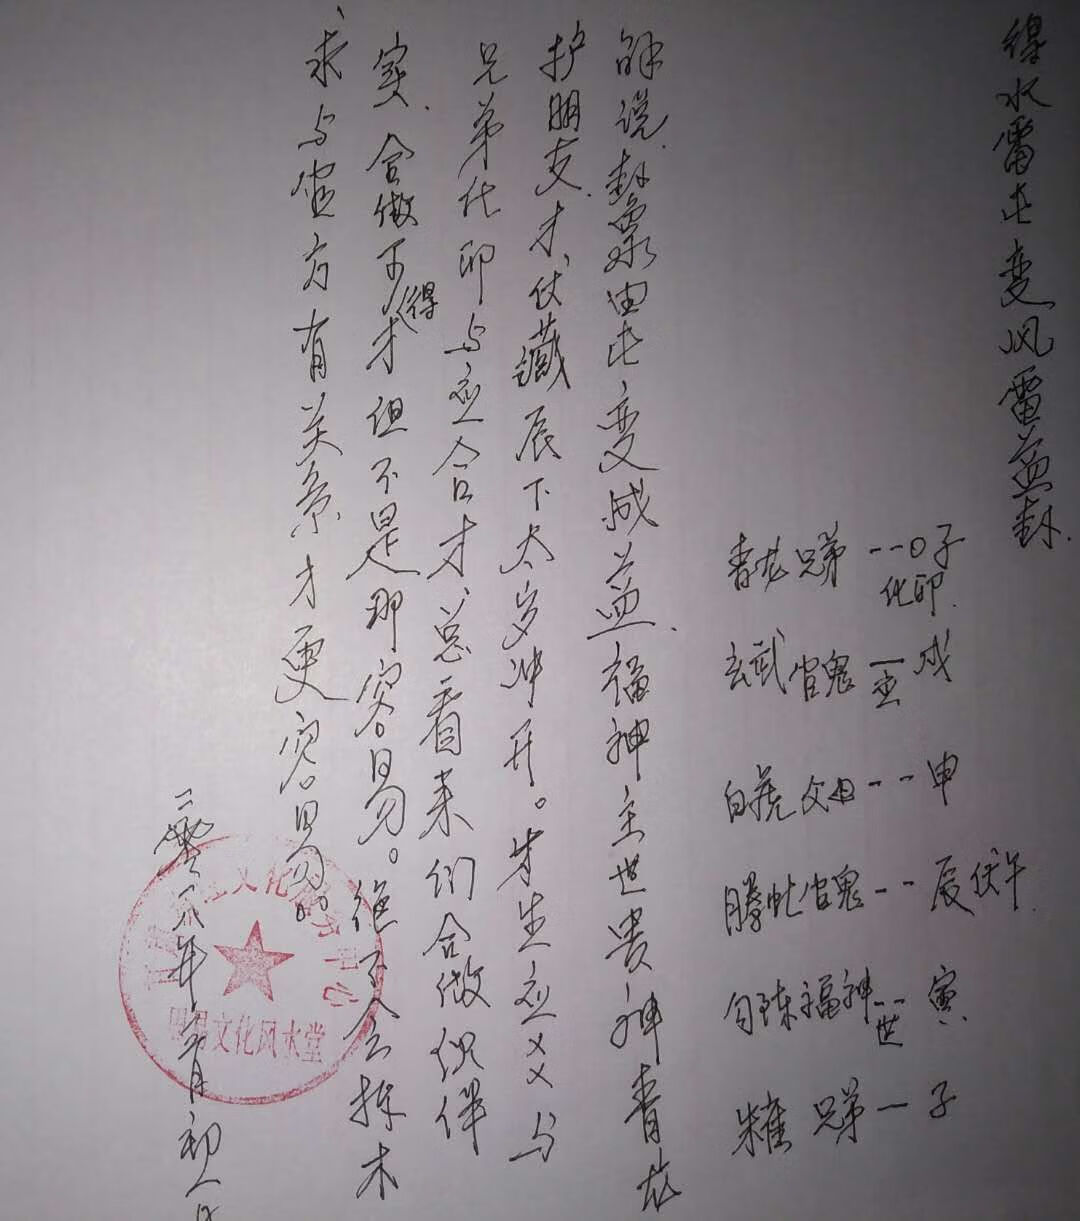 得水雷屯变风雷益卦.
青龙兄弟--O子
化卯.
玄武官鬼一戌
应
白虎父母--申
腾蛇官鬼--辰伏午
勾陈福神--寅
世
朱雀兄弟一子
解说.卦象由屯变成益.福神主世贵神青龙
护朋友.才伏藏辰下太岁冲开。才生应爻爻与
兄弟化卯与应合才.总看来们合做伙伴
实.合做不得才但不是那容易。绝不会拆木
求与官方有关系才更容易。
二零一八年月初八日
文化
中心
文化风水堂